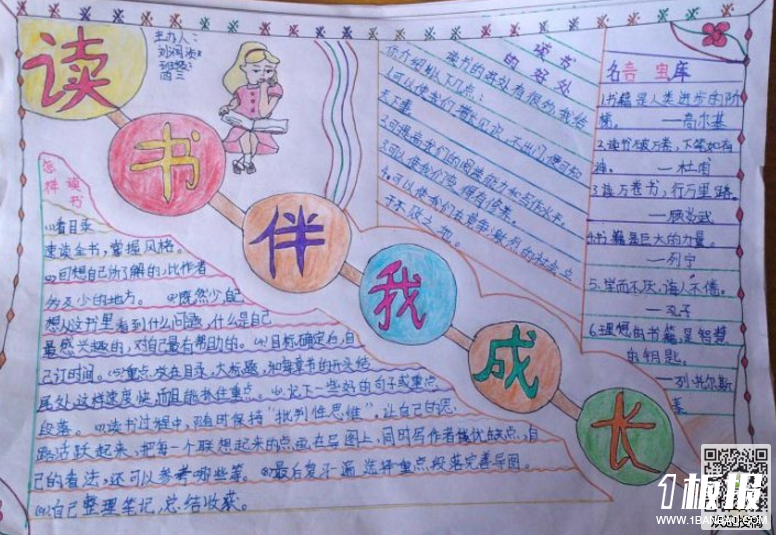 读
书
伴
我
成
长
主办人：
班级：
四三
读书
的好处
读书的好处有很多，我给
你介绍如下几点：
1.可以使我们增长见识，不出门便可知
天下事。
2.可提高我们的阅读能力和写作水平。
3.可以使我们变得有修养。
4.可以使我们在竞争激烈的社会立
于不败之地。
名言宝库
1.书籍是人类进步的阶
梯。 —高尔基
2.读书破万卷，下笔如有
神。 —杜甫
3.读万卷书，行万里路。
—顾炎武
4.书籍是巨大的力量。
—列宁
5.学而不厌，诲人不倦。
—孔子
6.理想的书籍，是智慧
的钥匙。
—列·托尔斯
泰
怎样读书
(1)看目录
速读全书，掌握风格。
(2)可想自己所了解的，比作者
的多少的地方。 (3)既然少，自己
想从这书里看到什么问题，什么是自己
最感兴趣的，对自己最有帮助的。(4)目标确定后，自
己订时间。(5)重点放在目录，大标题，和每章节的开头结
尾处，这样速度快，而且能抓住重点。(6)记下一些好的句子或重点
段落。 (7)读书过程中，随时保持“批判性思维”，让自己的思
路活跃起来，把每一个联想起来的点画在导图上，同时写作者优缺点，自
己的看法，还可以参考哪些等。(8)最后复习一遍 选择重点段落完善导图。
(9)自己整理笔记，总结收获。
1板报
WWW.1BANBAO.COM
欢迎投稿